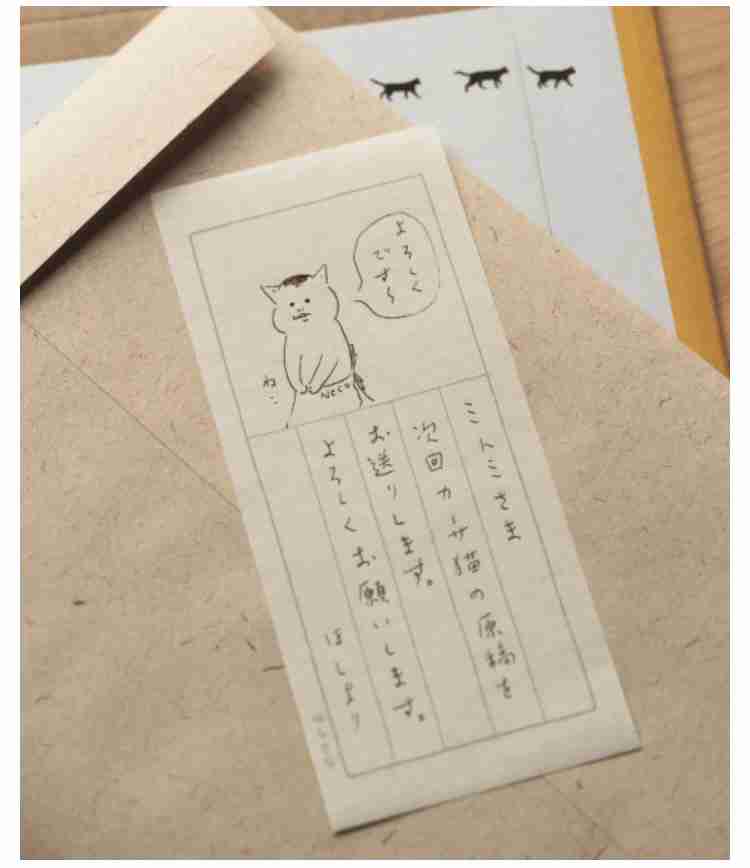 よろしく
です〜
ねこ
NECO
ミトミさま
次回カーサ猫の原稿を
お送りします。
よろしくお願いします。
ほしより